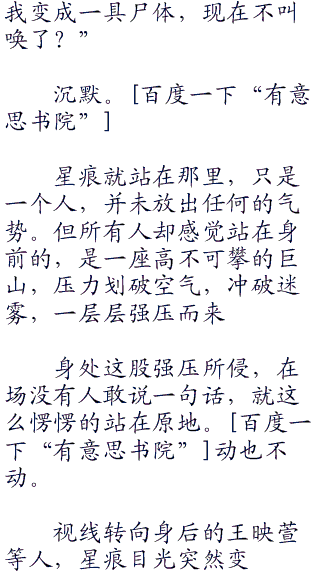 我变成一具尸体，现在不叫
唤了？”
沉默。[百度一下“有意
思书院”]
星痕就站在那里，只是
一个人，并未放出任何的气
势。但所有人却感觉站在身
前的，是一座高不可攀的巨
山，压力划破空气，冲破迷
雾，一层层强压而来
身处这股强压所侵，在
场没有人敢说一句话，就这
么愣愣的站在原地。[百度一
下“有意思书院”]动也不
动。
视线转向身后的王映萱
等人，星痕目光突然变